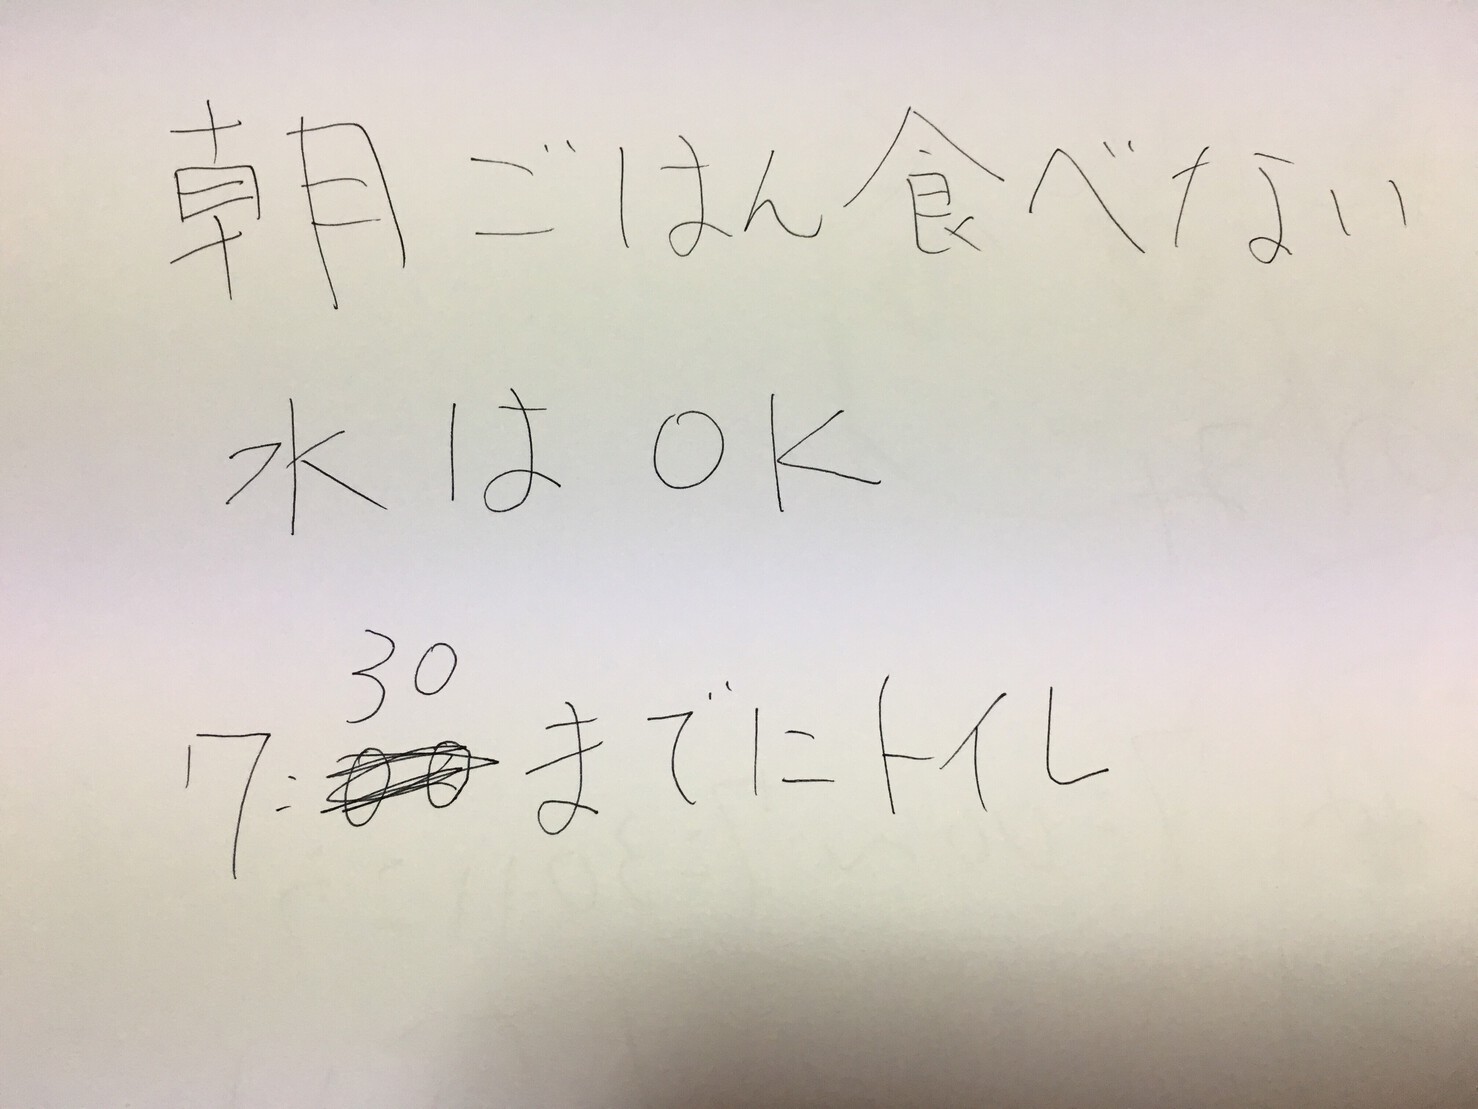 朝ごはん食べない
水はOK
7:30までにトイレ